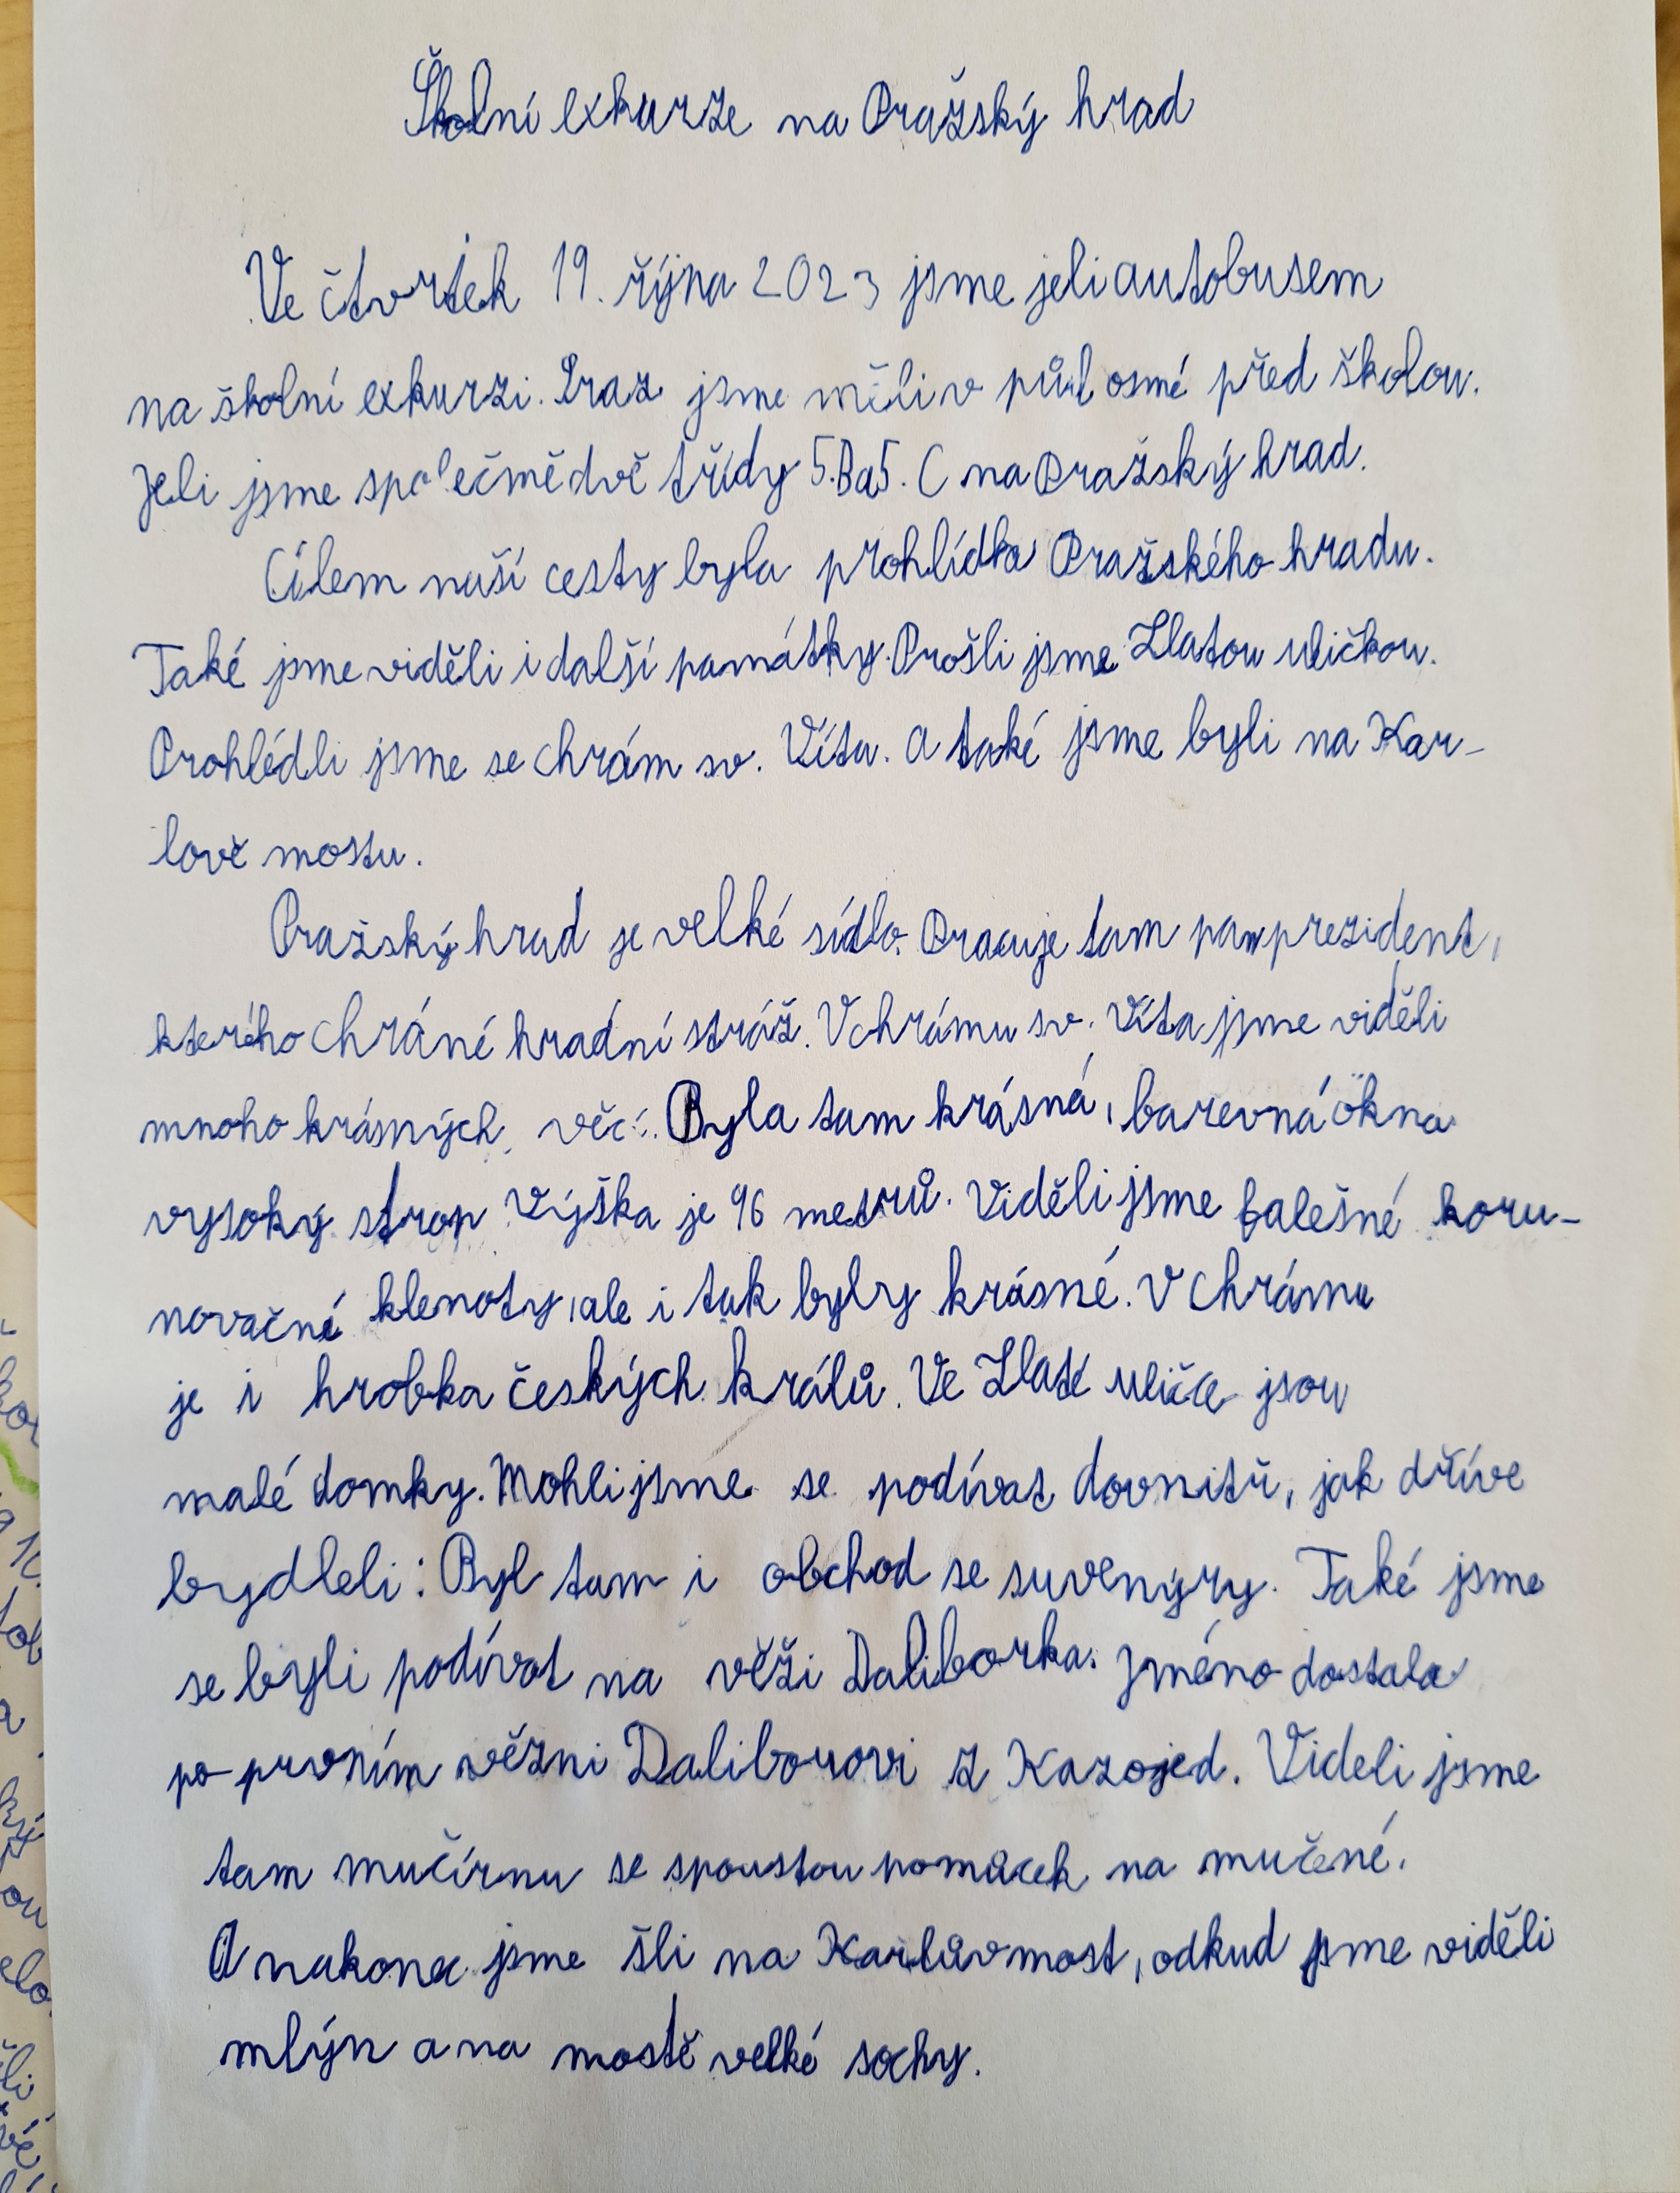 Školní exkurze na Pražský hrad
Ve čtvrtek 19. října 2023 jsme jeli autobusem
na školní exkurzi. Sraz jsme měli v půl osmé před školou.
Jeli jsme společmě dvě třídy 5.B a 5. C na Pražský hrad.
Cílem naší cesty byla prohlídka Pražského hradu.
Také jsme viděli i další památky. Prošli jsme Zlatou uličkou.
Prohlédli jsme se chrám sv. Víta. a také jsme byli na Kar-
lově mostu.
Pražský hrad je velké sídlo. Pracuje tam pan prezident,
kterého chráné hradní stráž. V chrámu sv. Víta jsme viděli
mnoho krásných věcí. Byla tam krásná, barevná okna
vysoký strop. Výška je 96 metrů. Viděli jsme falešné koru-
novačné klenoty, ale i tak byly krásné. V chrámu
je i hrobka českých králů. Ve Zlaté uličce jsou
malé domky. Mohli jsme se podívat dovnitř, jak dříve
bydleli: Byl tam i obchod se suvenýry. Také jsme
se byli podívat na věži Daliborka. Jméno dostala
po prvním vězni Daliborovi z Kozojed. Videli jsme
tam mučírnu se spoustou pomůcek na mučené.
A nakonec jsme šli na Karlův most, odkud jsme viděli
mlýn a na mostě velké sochy.